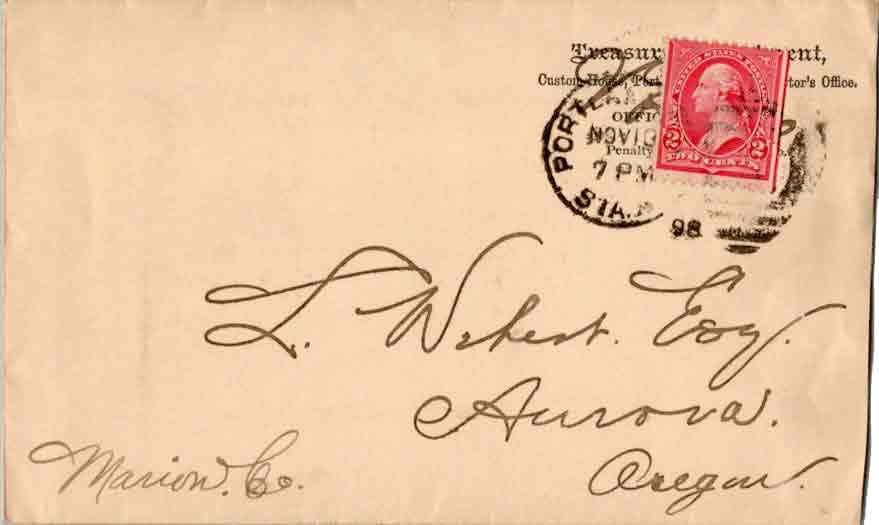 Treasur ent,
Custom House, Port tor's Office.
OFFIC
Penalty
PORTLA
NOV10
7 PM
STA.A
98
UNITED STATES POSTAGE
2 TWO CENTS 2
L. Webert. Esq.
Aurora.
Oregon.
Marion. Co.